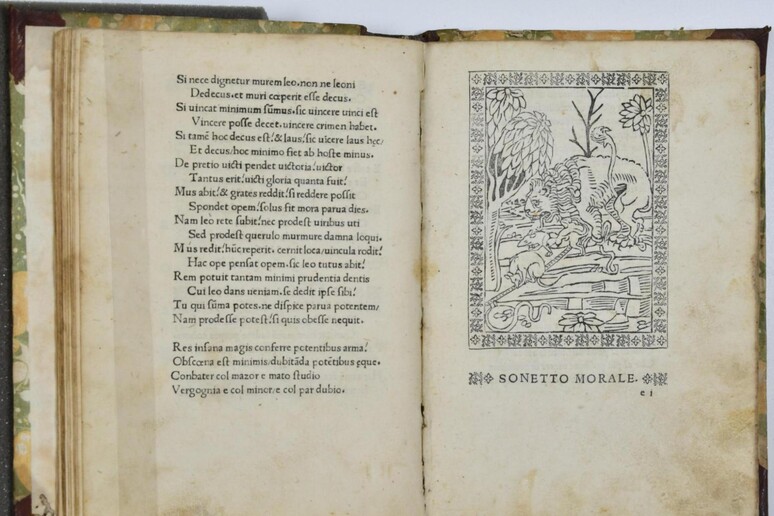 Si nece dignetur murem leo. non ne leoni
Dedecus. et muri cœperit esse decus.
Si uincat minimum sūmus. sic uincere uinci est
Vincere posse decet. uincere crimen habet.
Si tamē hoc decus est! & laus! sic uīcere laus hęc/
Et decus/ hoc minimo fiet ab hoste minus.
De pretio uicti pendet uictoria! uictor
Tantus erit! uicti gloria quanta fuit!
Mus abit! & grates reddit! si reddere possit
Spondet opem! solus fit mora parua dies.
Nam leo rete subit! nec prodest uiribus uti
Sed prodest querulo murmure damna loqui.
Mus redit! hūc reperit. cernit loca/ uincula rodit!
Hac ope pensat opem. sic leo tutus abit!
Rem potuit tantam minimi prudentia dentis
Cui leo dans ueniam. se dedit ipse sibi!
Tu qui sūma potes. ne dispice parua potentem/
Nam prodesse potest! si quis obesse nequit.
Res insana magis conferre potentibus arma!
Obscœna est minimis. dubitāda potētibus ęque.
Conbater col mazor e mato studio
Vergognia e col minor/ e col par dubio.
SONETTO MORALE.
e i